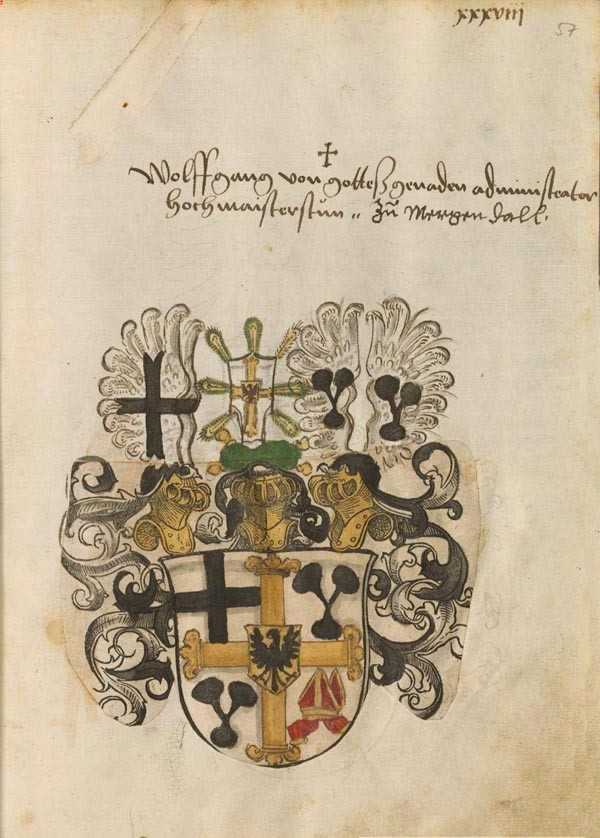 xxxviii
57
Wolffgang von gotteß genaden administrator
hochmaisterstùn ,, Zů Mergen dall .